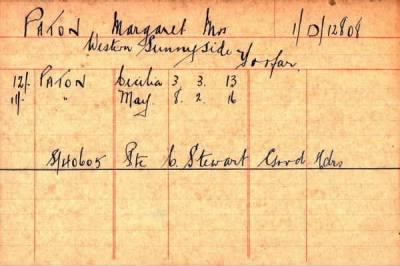 PATON Margaret Mrs 1/D/12808
Western Sunnyside
Forfar
12/- PATON Cecilia 3. 3. 13
11/- " May. 8. 2. 16
S/40605 Pte C. Stewart Gord Hdrs